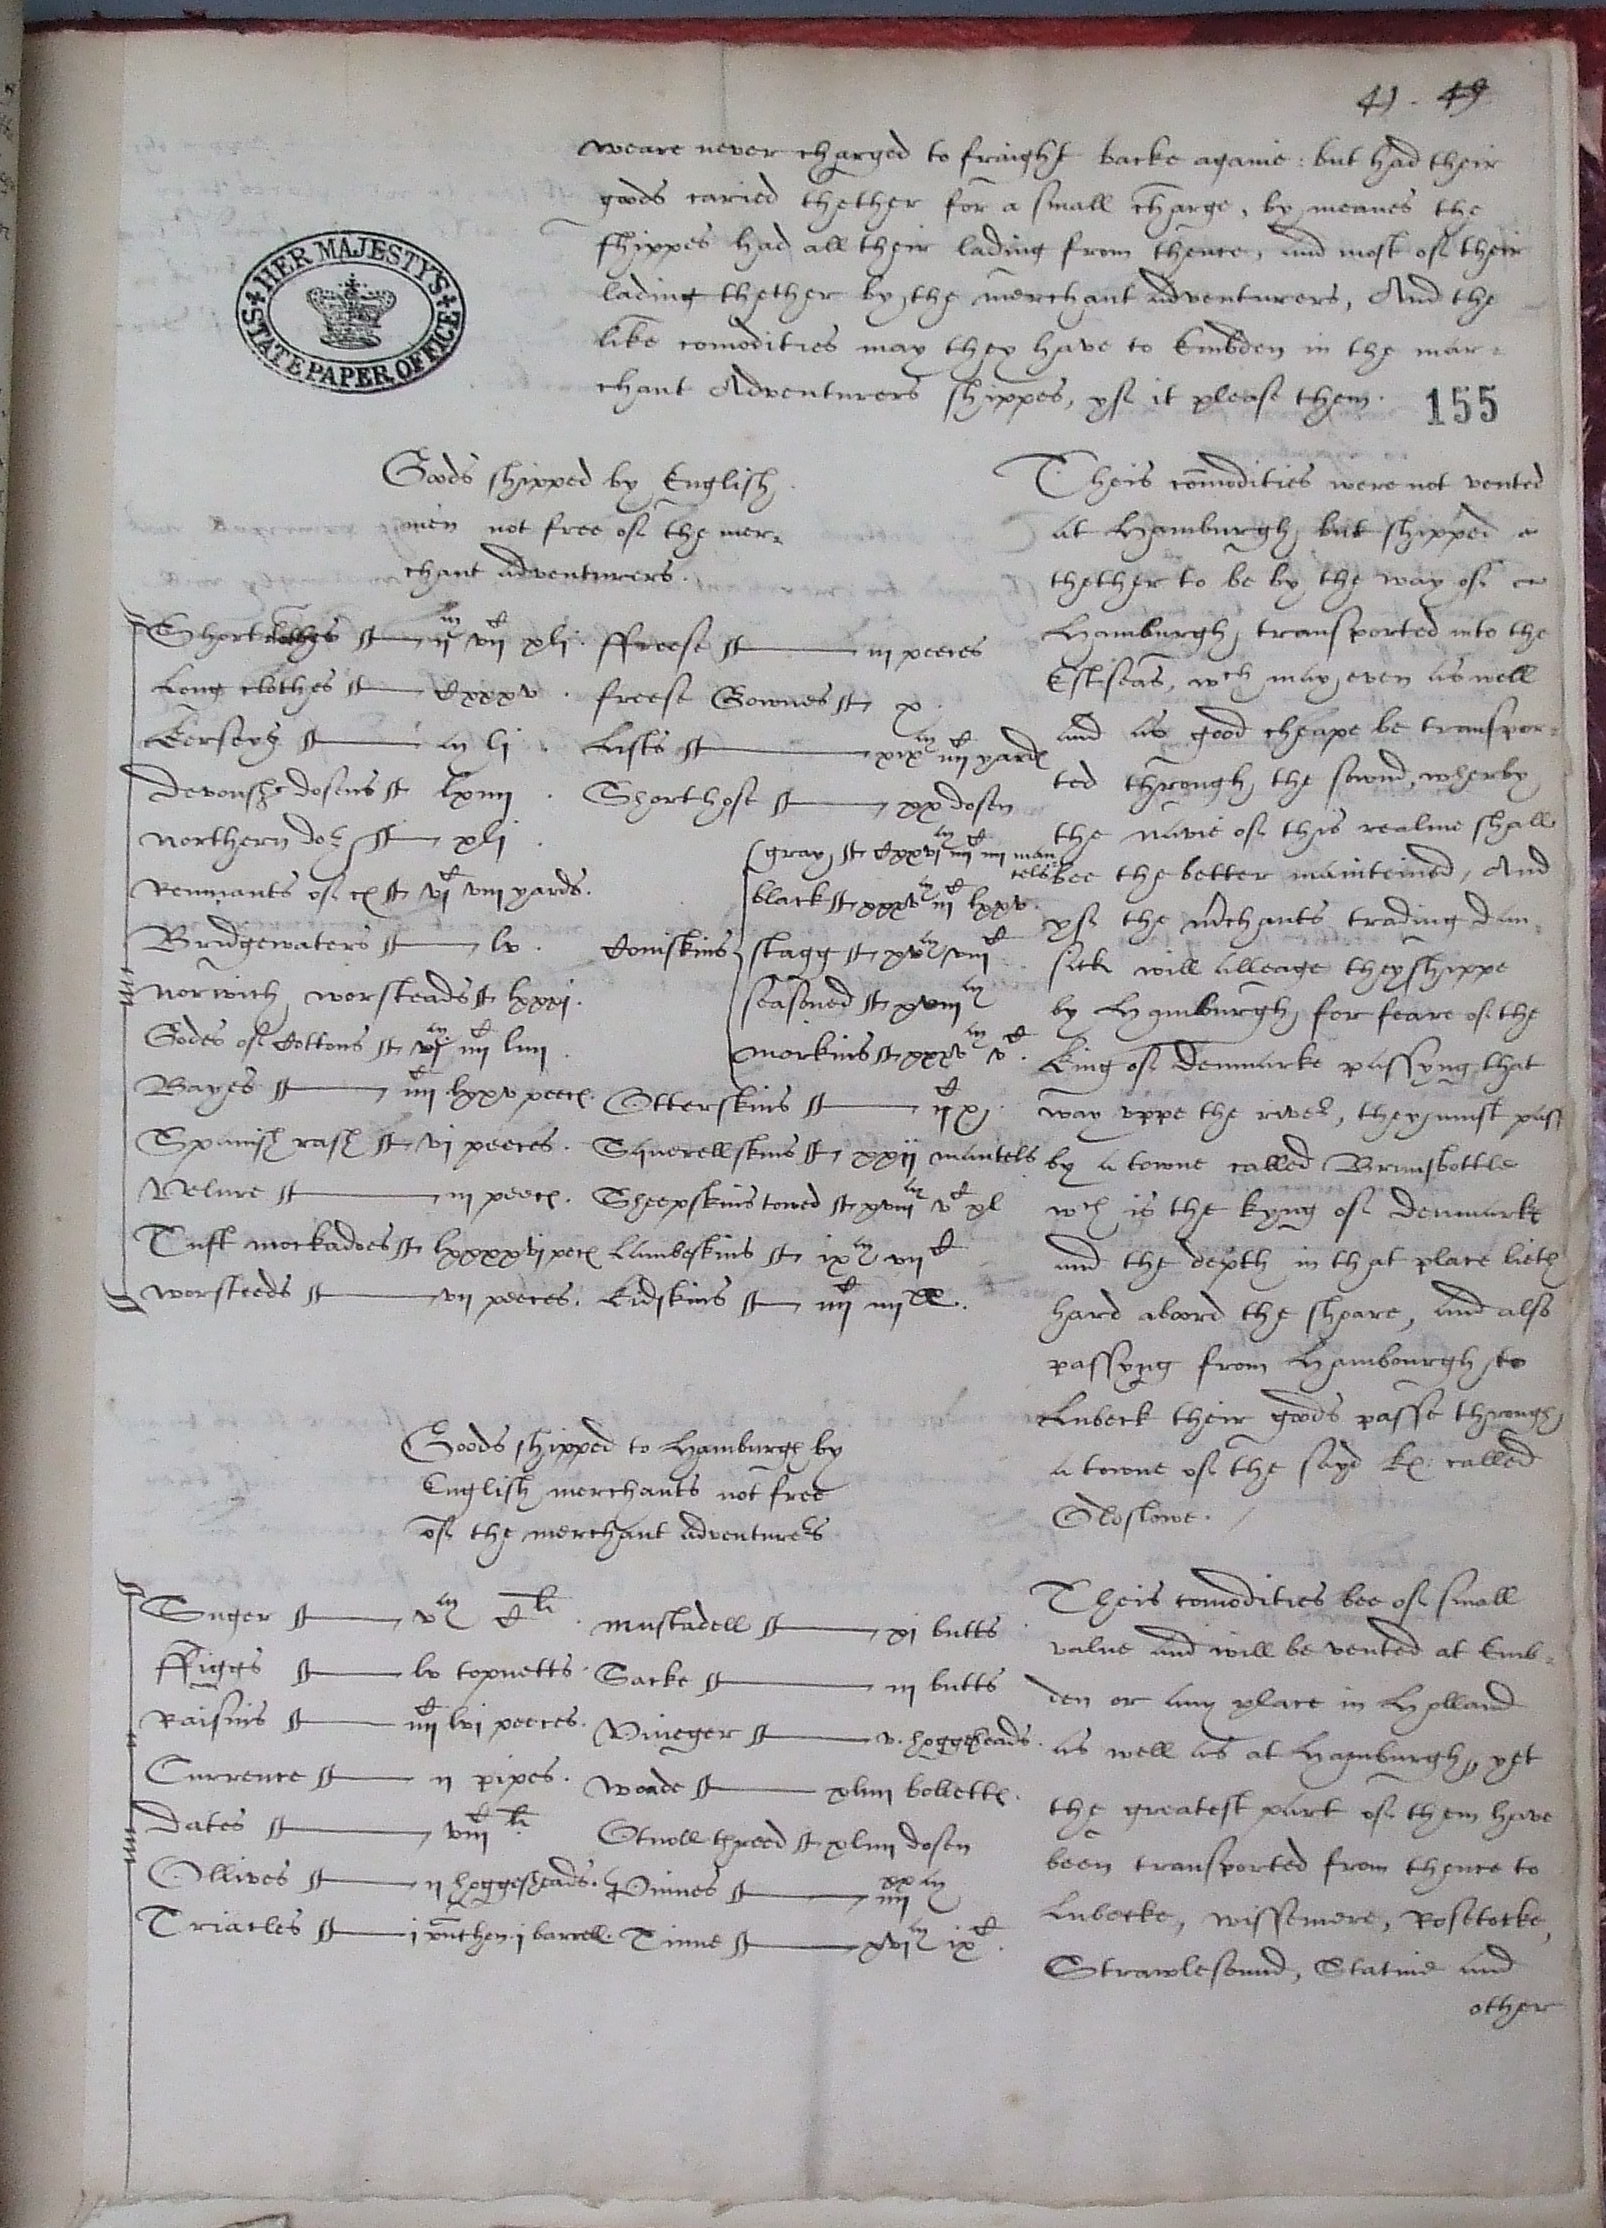 41 . 49
weare never charged to fraight backe againe : but had their
goods caried thether for a small charge, by meanes the
shippes had all their lading from thence, and most of their
lading thether by the merchant adventurers, And the
like comodities may they have to Embden in the mar-
chant Adventurers shippes, yf it please them.
HER MAJESTY'S
STATE PAPER OFFICE
155
Goods shipped by English
men not free of the mer-
chant adventurers.
Short clothes ii m vii c xli .
Long clothes cxxxv .
Kerseys li .
Devonsh dosens lxiiii .
Northern do xli .
Remnants of vi c viii yards.
Bridgewaters lv .
Norwich worsteads lxxxi .
Godes of Cottons vi m iiii c liiii .
Bayes iiii c lxxv peec .
Spanish rash vi peeces .
Velure iii peec .
Tuft mockadoes lxxxxvi pec
Worsteeds vii peeces .
ffreese iii peeces
freese Gownes x .
Lists xix m iiii c yard
Shorthose xx dosen
Coniskins
gray cxxvi m iiii c iii man-
tels
black xxxv m iii c lxxv .
stagg xv m viii c
seasoned xviii m
morkins xxxv m v c .
Otterskins ii c xi .
Squerellskins xxii mantels
Sheepskins towed xviii m v c xl
Lambeskins ix m vii c
Kidskins iiii c iiii xx .
Theis comodities were not vented
at Hamburgh but shipped
thether to be by the way of
Hamburgh transported into the
Estseas, wch may even as well
and as good cheape be transpor-
ted through the sownd, wherby
the navie of this realme shall
bee the better mainteined, And
yf the mchants trading Dan-
sick will alleage they shippe
by Hamburgh for feare of the
King of Denmarke passyng that
way uppe the river, they must pass
by a towne called Brunsbottle
wch is the kyng of Denmarke
and the depth in that place lieth
hard aboord the shoare, and also
passyng from Hambourgh to
Lubeck their goods passe through
a towne of the sayd K : called
Odoslowe .
Goods shipped to Hamburgh by
English merchants not free
of the merchant adventurers
Suger v m c li .
ffiggs lv topnetts .
Raisins iiii c lvi peeces .
Currence ii pipes .
Dates viii c li .
Ollives ii hoggesheads .
Triacles i punchon . i barrell .
Muskadell xi butts
Sacke iii butts
Vineger v . hoggesheads .
Woade xliiii bollett .
Otnoll threed xliiii dosen
Pinnes iiii xx m
Tinne xvi m ix c .
Theis comodities bee of small
value and will be vented at Emb-
den or any place in Holland
as well as at Hamburgh, yet
the greatest part of them have
been transported from thence to
Lubecke, Wissemere, Rosetocke,
Strawlesound, Statine and
other